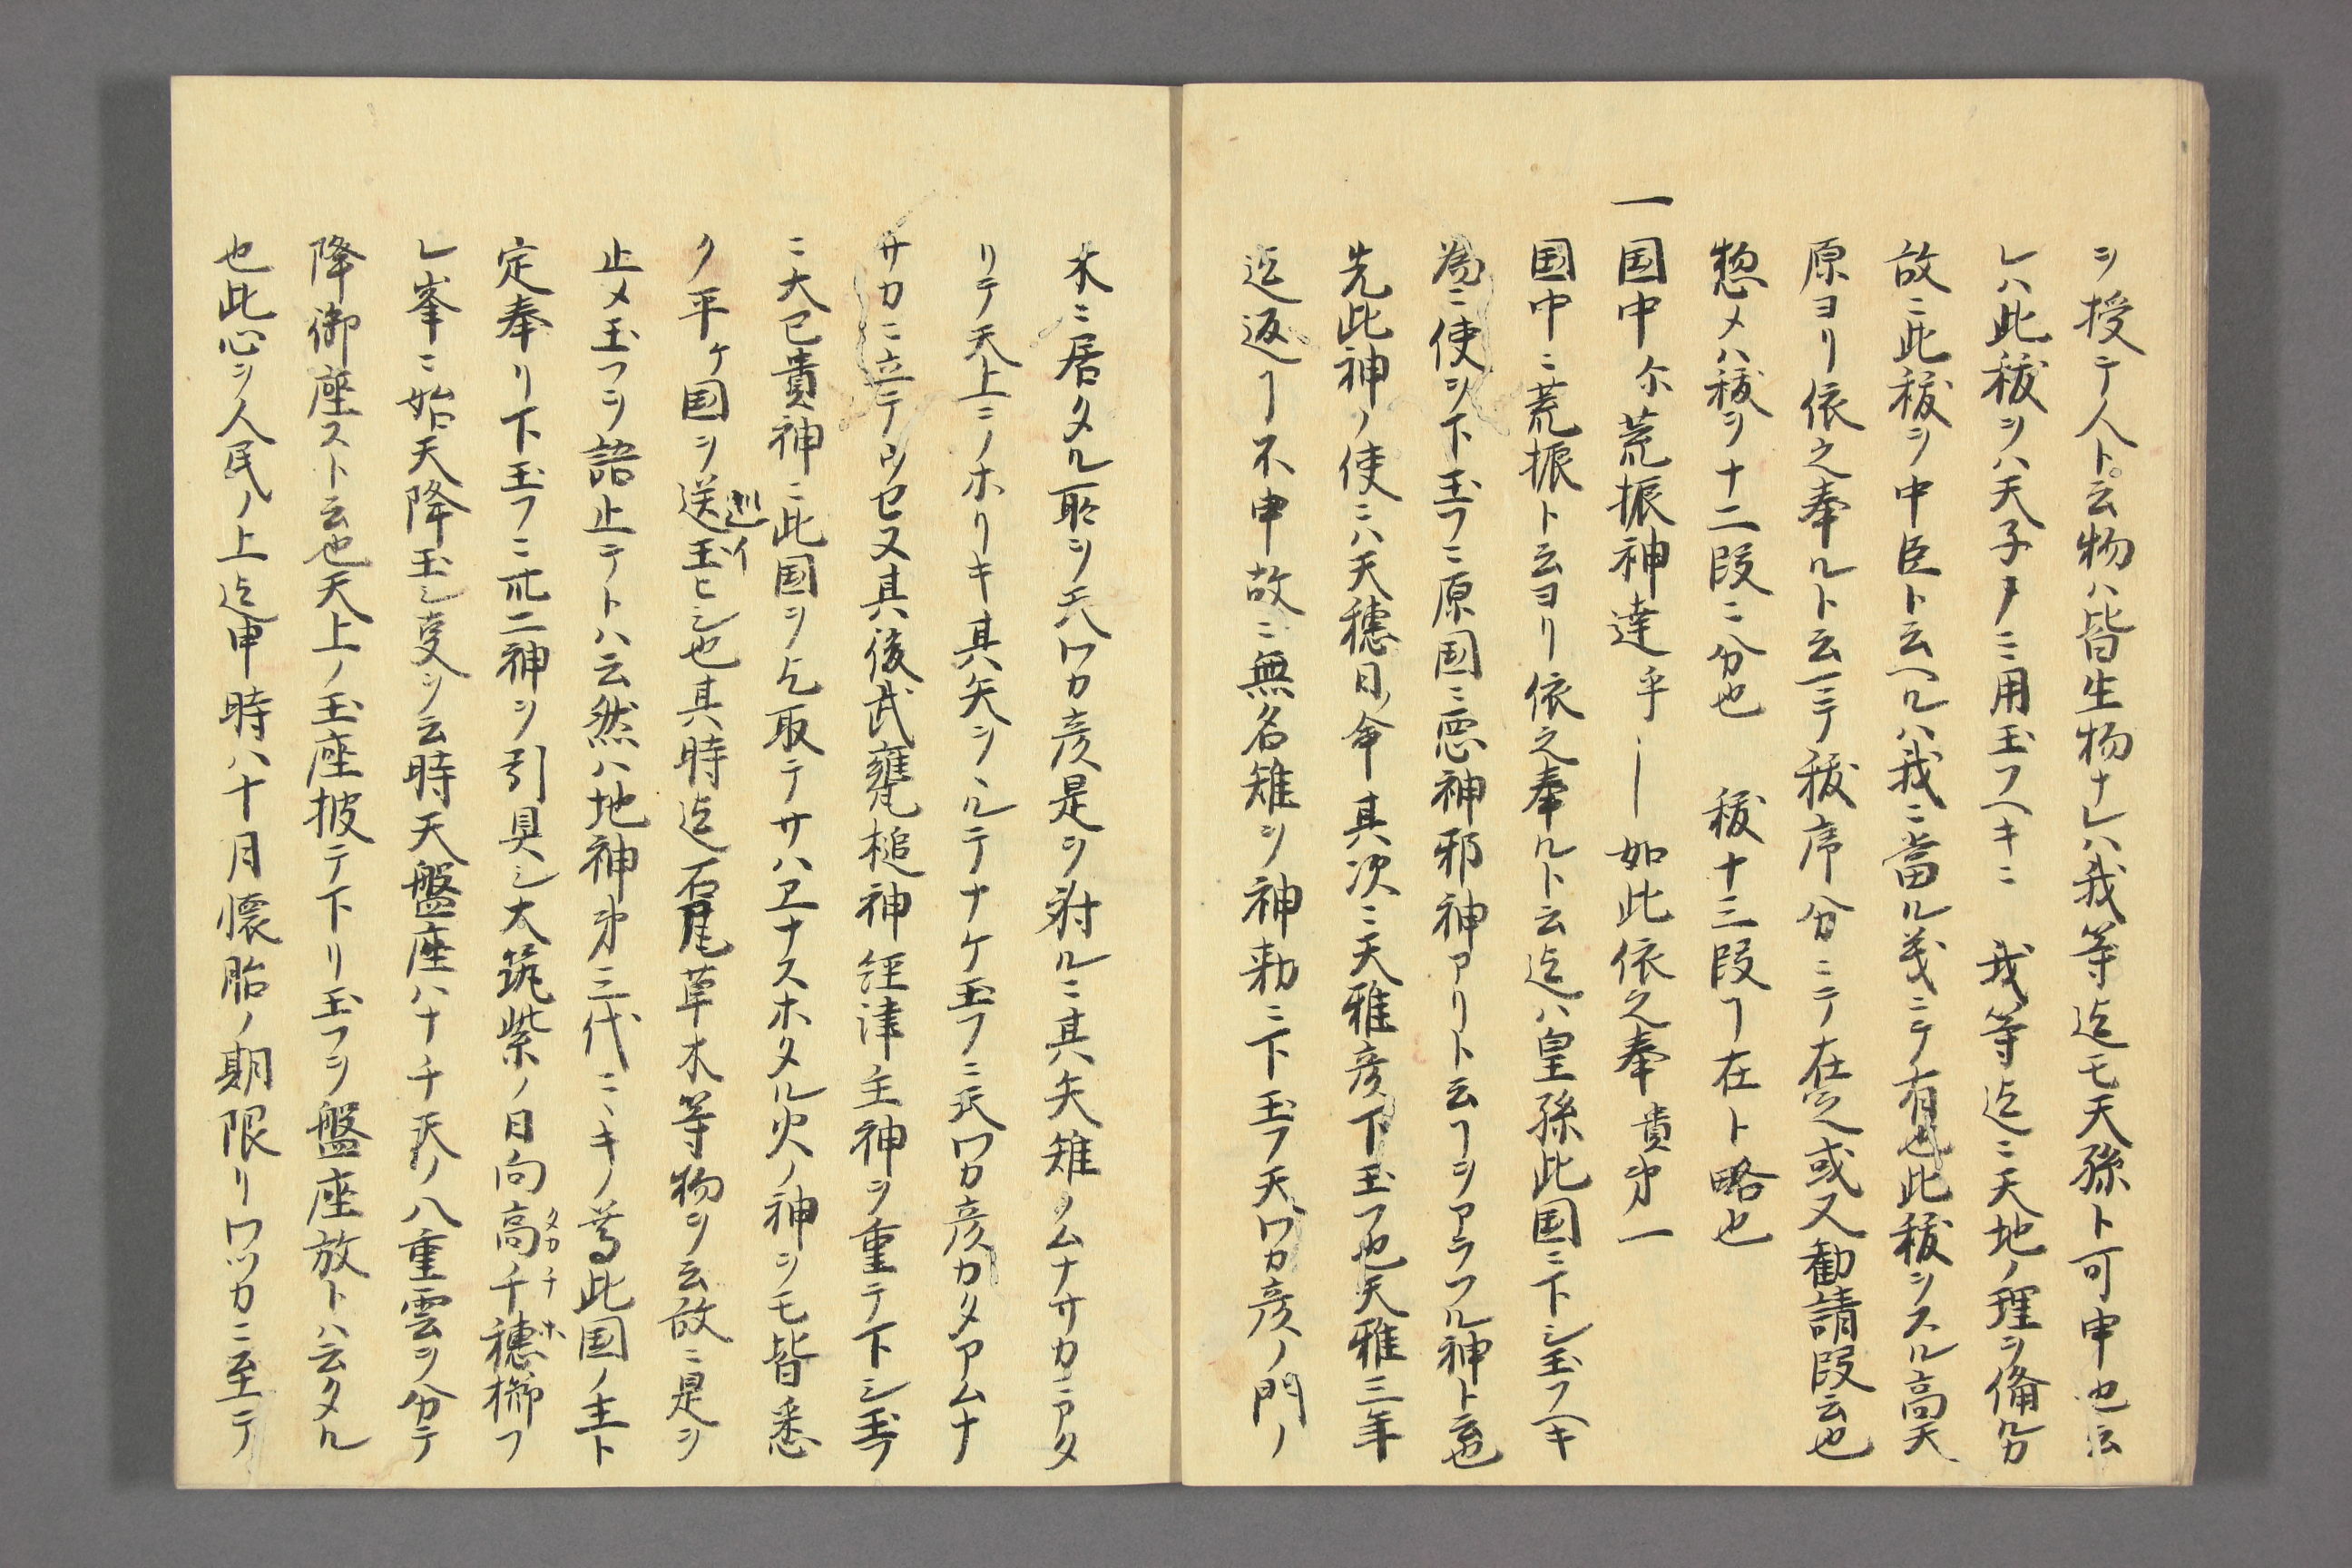 ヲ授テ人ト云物ハ皆生物ナレハ我等迄モ天孫ト可申也云
レハ此祓ヲハ天子ノミ用玉フヘキニ 我等迄ニ天地ノ理ヲ備ル分
故ニ此祓ヲ中臣ト云ヘルハ我ニ當ル義ニテ有也此祓ヲスル高天
原ヨリ依之奉ルト云迄テ祓序分ニテ在之或又勧請段云也
惣メハ祓ヲ十二段ニ分也 祓十三段ヿ在ト略也
一国中尓荒振神達乎ー如此依之奉貴弟一
国中ニ荒振ト云ヨリ依之奉ルト云迄ハ皇孫此国ニ下シ玉フヘキ
為ニ使ヲ下玉フニ原国ニ悪神邪神アリト云ヿヲアラフル神ト意也
先此神ノ使ニハ天穂日命其次ニ天雅彦下玉フ也天雅三年
迄返ヿ不申故ニ無名雉ヲ神勅ニ下玉フ天ワカ彦ノ門ノ
木ニ居タル所ヲ天ワカ彦是ヲ射ルニ其矢雉ノムナサカニアタ
リテ天上ニノホリキ其矢ヲルテナケ玉フニ天ワカ彦カタアムナ
サカニ立テウセ又其後武甕槌神経津主神ヲ重テ下シ玉フ
ニ大已貴神ニ此国ヲ乞取テサハヱナスホタル火ノ神ヲモ皆悉
ク平ケ国ヲ送玉ヒシ也其時迄石尾草木等物ヲ云故ニ是ヲ
巡イ
止メ玉フヲ語止テトハ云然ハ地神弟三代ニヽキノ尊此国ノ主ト
定奉リ下玉フニ卅二神ヲ引具シ大筑紫ノ日向高千穂櫛フ
タカチホ
レ峯ニ始天降玉シ叓ヲ云時天盤座ハナチ天ノ八重雲ヲ分テ
降御座スト云也天上ノ玉座披テ下リ玉フヲ盤座放トハ云タル
也此心ヲ人民ノ上迄申時ハ十月懐胎ノ期限リワツカニ至テ